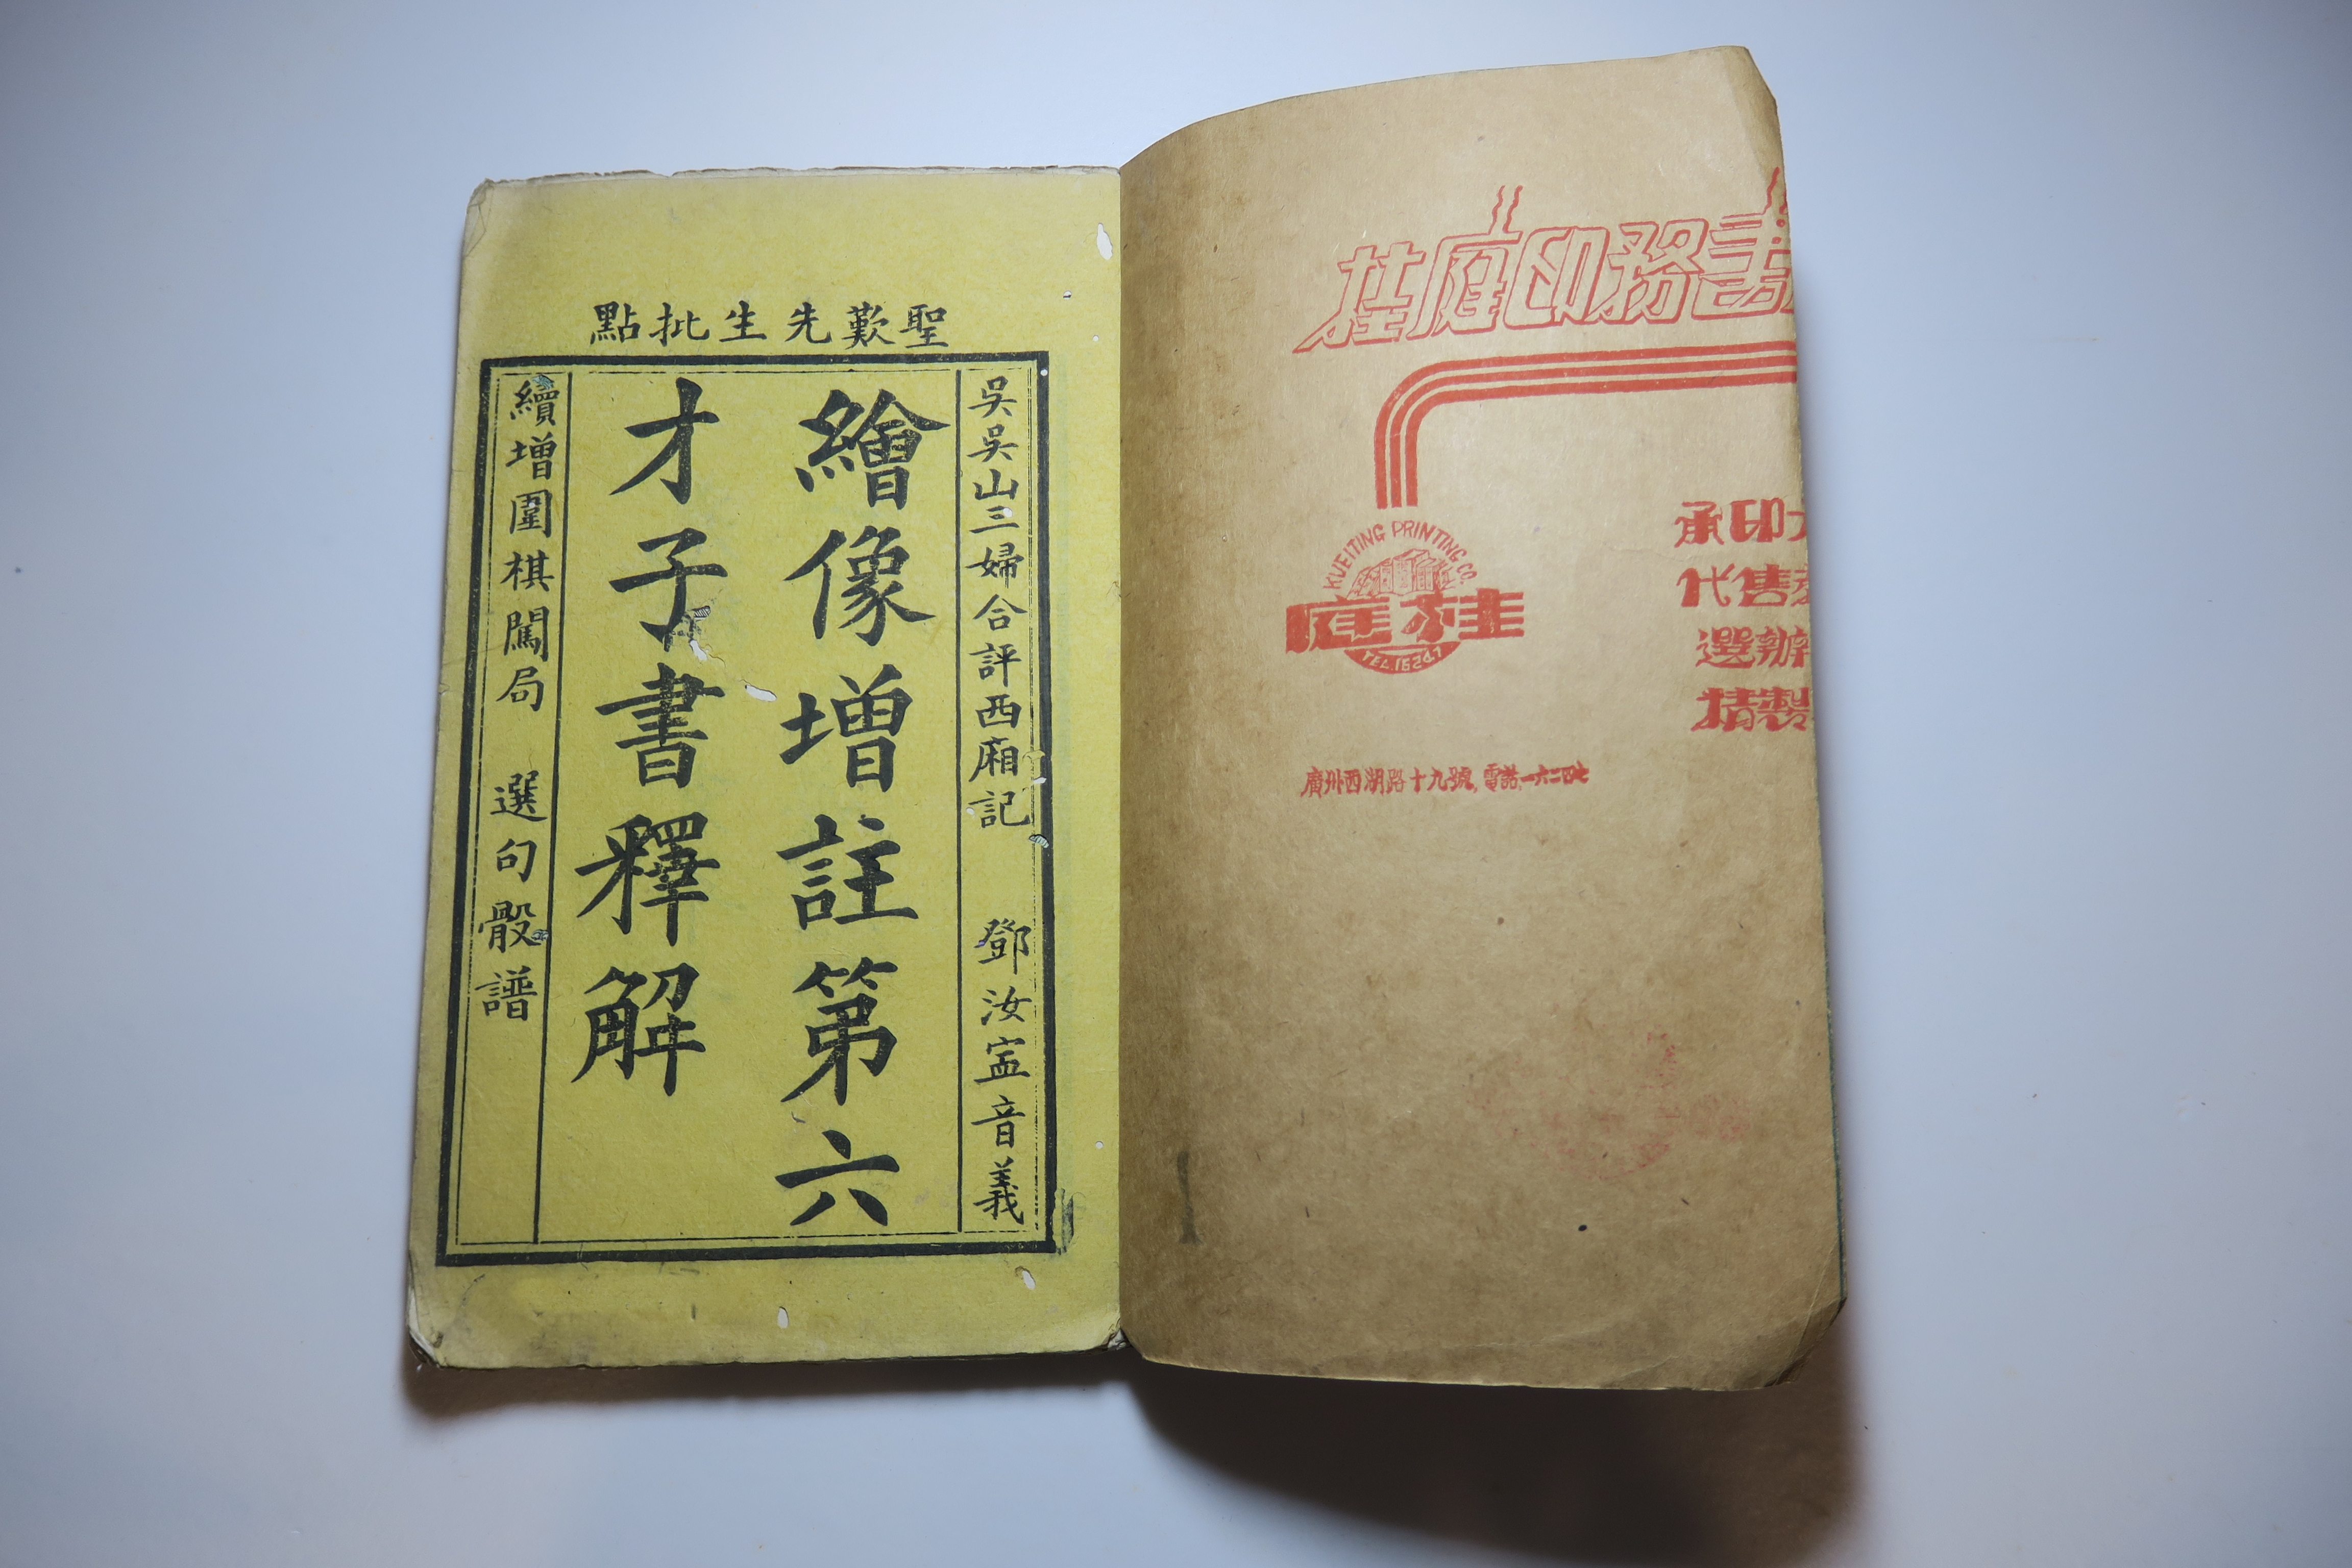 聖歎先生批點
吳吳山三婦合評西廂記 鄧汝寍音義
繪像增註第六
才子書釋解
續增圍棋闖局 選句骰譜
桂庭印務書
KUEITING PRINTING CO.
庭桂
TEL.16247
承印
代售
選辦
精製
廣州西湖路十九號,電話一六二四七